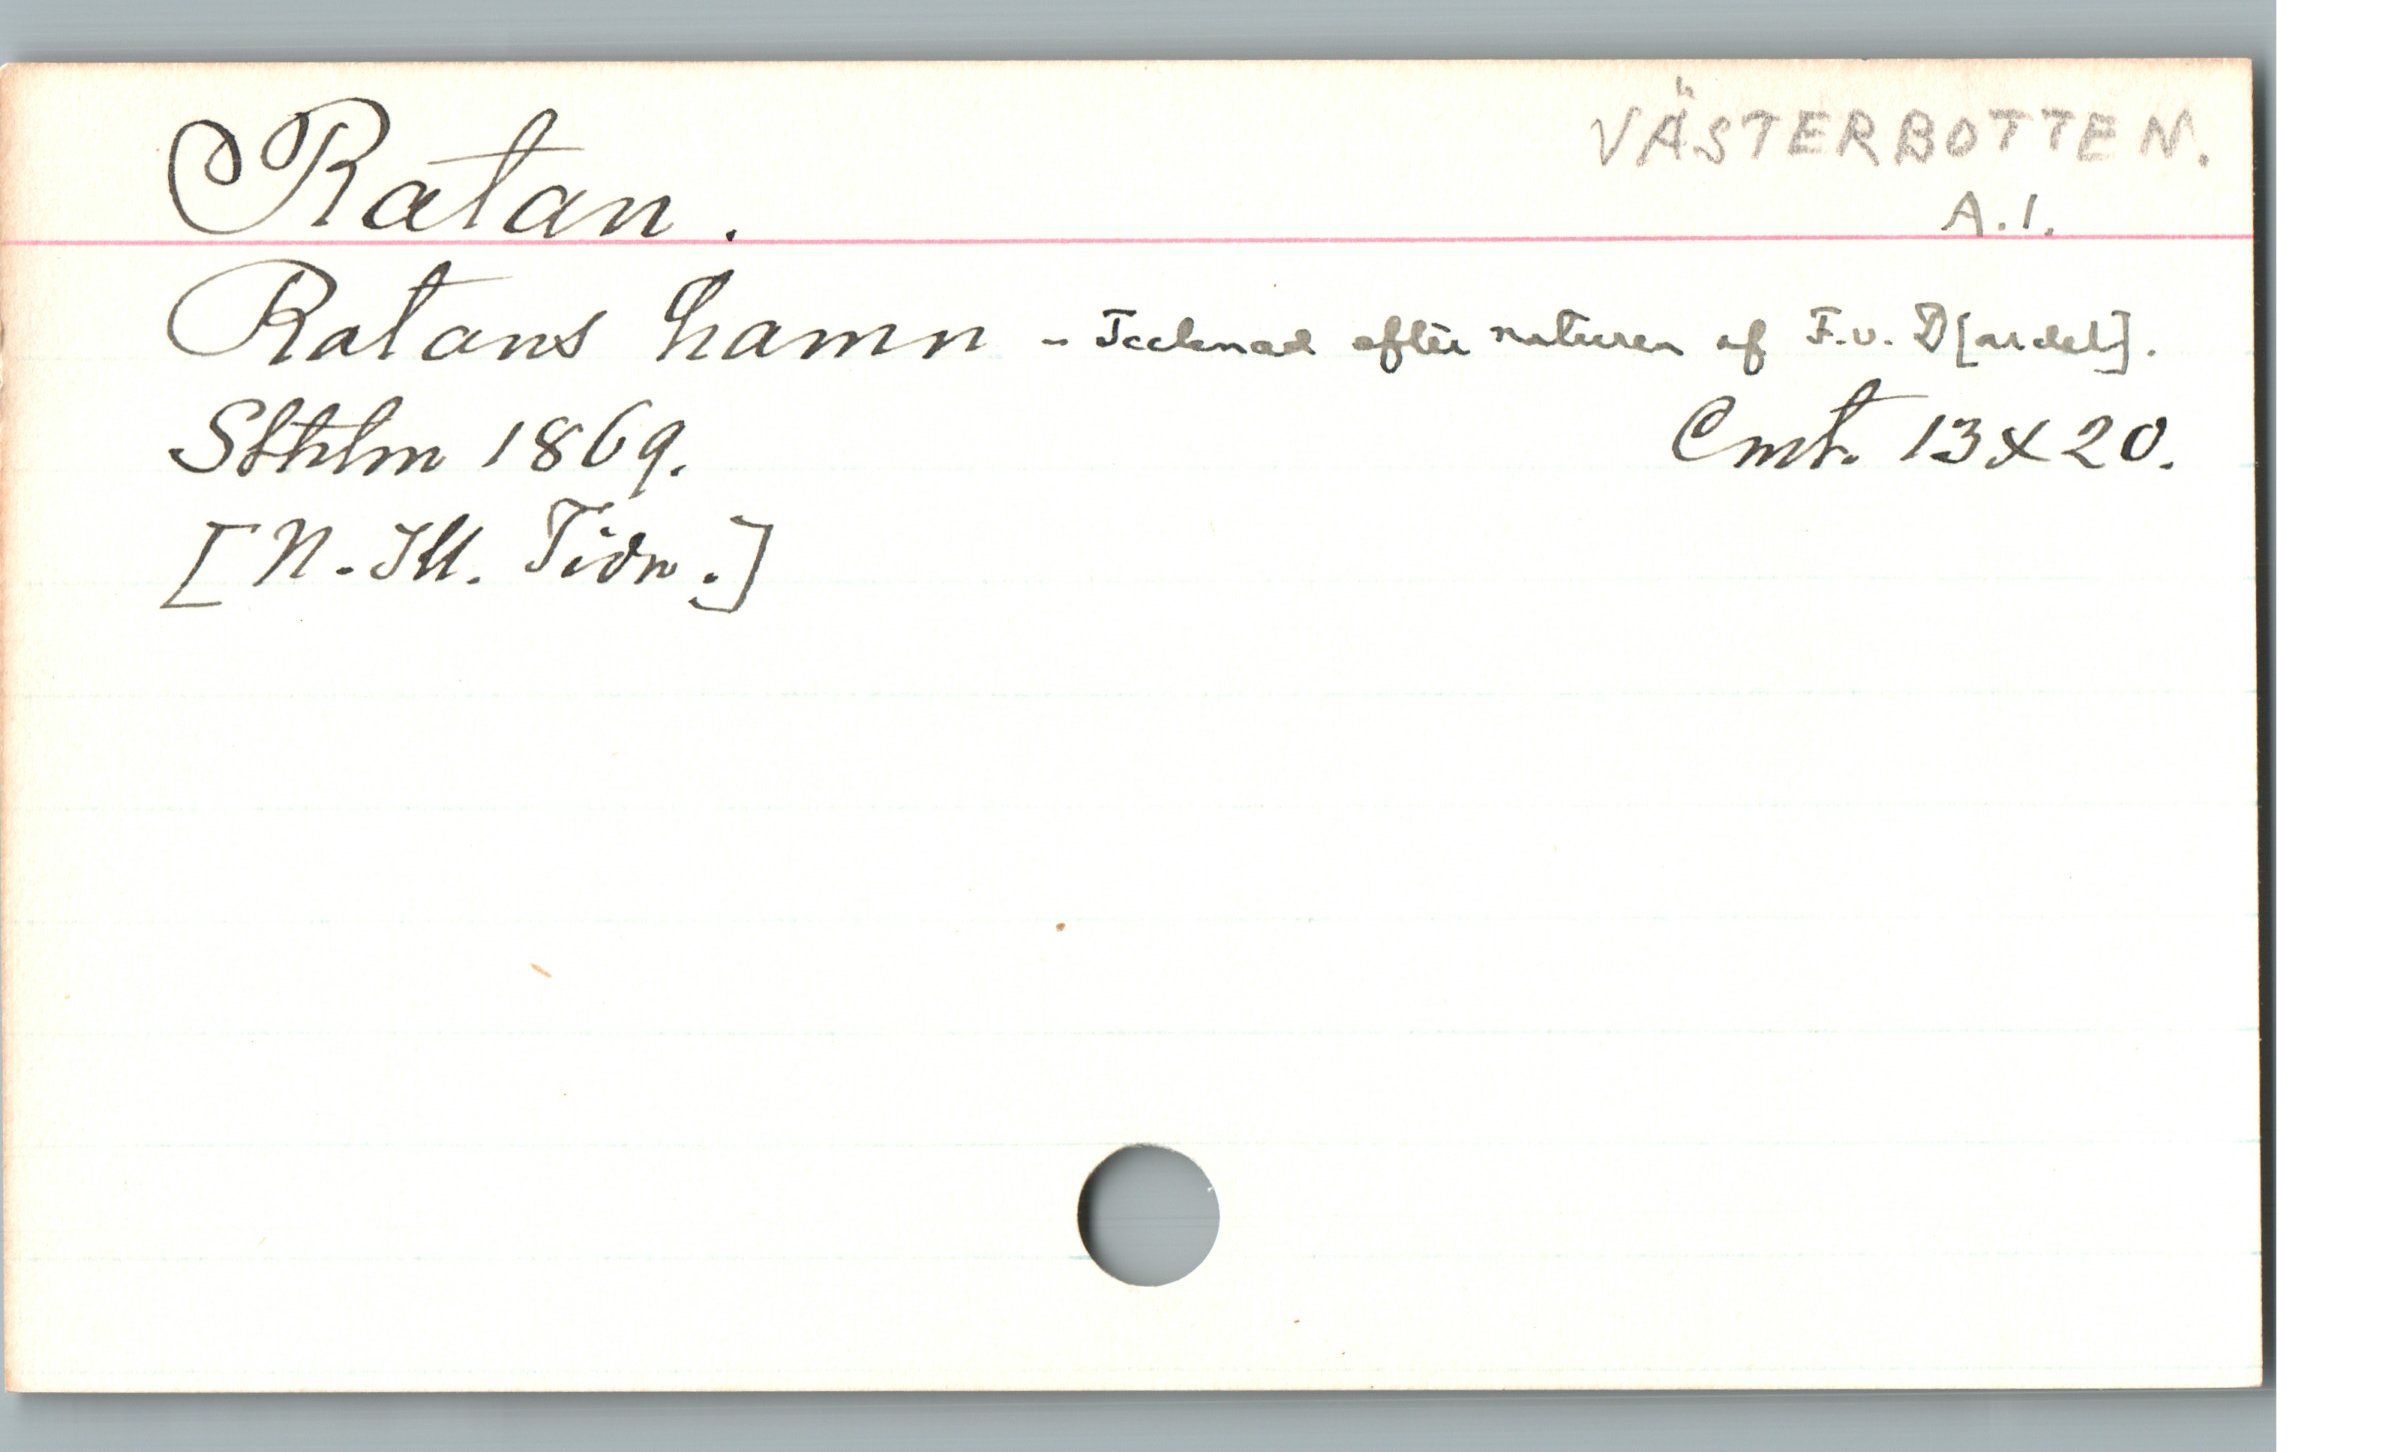 Ratan.
VÄSTERBOTTEN.
A.1.
Ratans hamn - Tecknad efter naturen af F.v. D[ardel].
Sthlm 1869.
Cmt. 13x20.
[N. Ill. Tidn.]